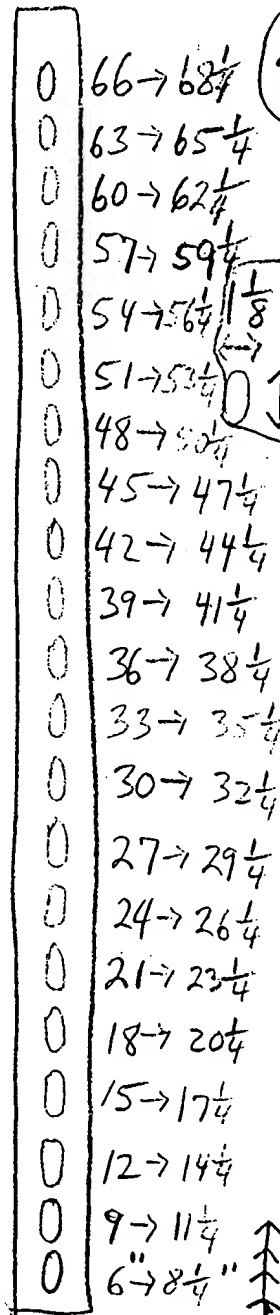 66→68 1/4
63→65 1/4
60→62 1/4
57→59 1/4
54→56 1/4
1 1/8
51→53 1/4
48→50 1/4
45→47 1/4
42→44 1/4
39→41 1/4
36→38 1/4
33→35 1/4
30→32 1/4
27→29 1/4
24→26 1/4
21→23 1/4
18→20 1/4
15→17 1/4
12→14 1/4
9→11 1/4
6"→8 1/4"